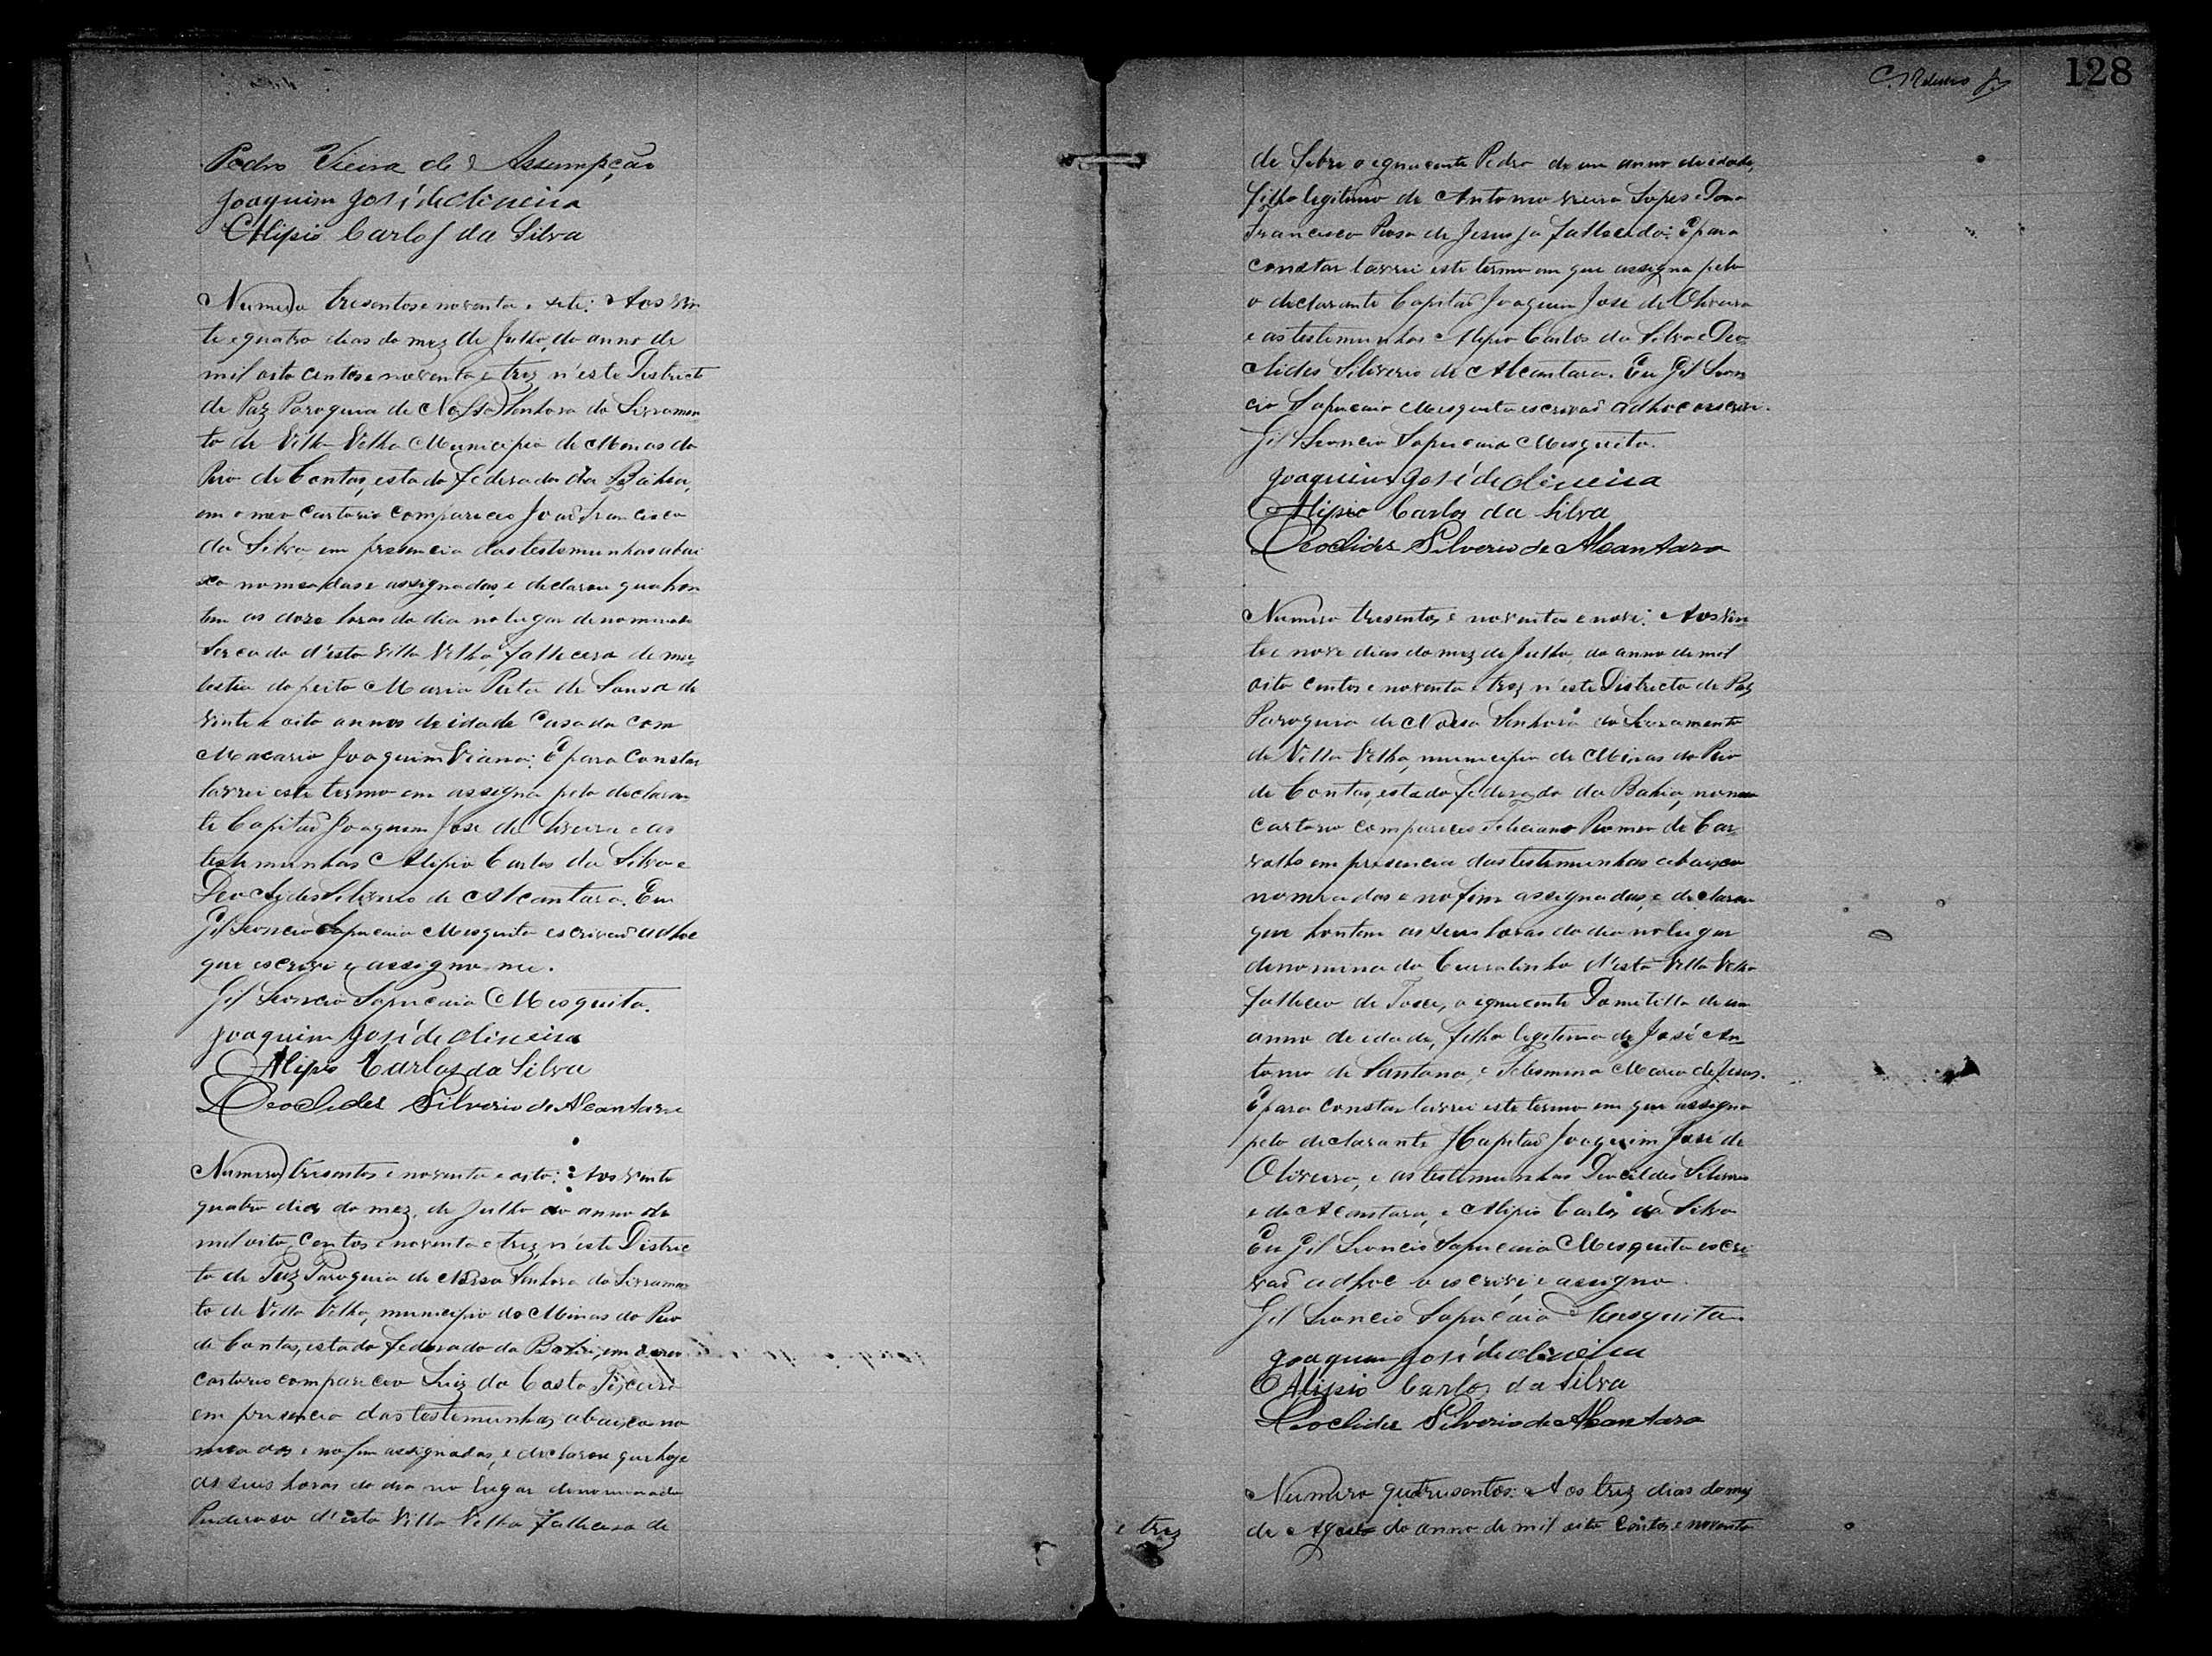 Pedro Vieira de Assumpção
Joaquim José de Oliveira
Alipio Carlos da Silva
Numero tresentos e noventa e sete: Aos vin
te e quatro dias do mez de Julho, do anno de
mil oito centos e noventa e trez, n'este Districto
de Paz Paroquia de Nossa Senhora do Livramen
to de Villa Velha Municipio de Minas do
Rio de Contas, estado federado da Bahia,
em o meu Cartorio compareceo João Francisco
da Silva em presencia das testemunhas abai
xo nomeadas e assignadas, e declarou que hon
tem as doze horas do dia no lugar denominado
Sercado d'esta Villa Velha, fallecera de mo
lestia do peito Maria Rita de Sousa de
vinte e oito annos de idade Casada com
Macario Joaquim Viana: E para Constar
lavrei este termo em assigna pelo declaran
te Capitão Joaquim Jose de Oliveira e as
testemunhas Alipio Carlos da Silva e
Deoclides Silverio de Alcantara. Eu
Gil Leoncio Sapucaia Mesquita escrivão adhoc
que escrevi e assigno-me.
Gil Leoncio Sapucaia Mesquita.
Joaquim José de Oliveira
Alipio Carlos da Silva
Deoclides Silverio de Alcantara
Numero tresentos e noventa e oito: Aos vinte
quatro dias do mez, de Julho do anno de
mil oito centos e noventa e trez, n'este Distric
to de Paz Paroquia de Nossa Senhora do Livramen
to de Villa Velha, municipio de Minas do Rio
de Contas, estado federado da Bahia, em o meu
cartorio compareceo Luiz da Costa
em presencia das testemunhas abaixo no
meadas e no fim assignadas, e declarou que hoje
as seis horas do dia no lugar denominado
d'esta Villa Velha fallecera de
128
de febre o ignocente Pedro de um anno de idade,
filho legitimo de Antonio Vieira Lopes e Dona
Francisca Rosa de Jesus ja fallecida: E para
constar lavrei este termo em que assigna pelo
o declarante Capitão Joaquim Jose de Oliveira
e as testemunhas Alipio Carlos da Silva e Deo
clides Silverio de Alcantara. Eu Gil Leon
cio Sapucaia Mesquita escrivão adhoc escrevi.
Gil Leoncio Sapucaia Mesquita.
Joaquim José de Oliveira
Alipio Carlos da Silva
Deoclides Silverio de Alcantara
Numero tresentos e noventa e nove: Aos vin
te e nove dias do mez de Julho, do anno de mil
oito centos e noventa e trez n'este Districto de Paz
Paroquia de Nossa Senhora do Livramento
de Villa Velha, municipio de Minas do Rio
de Contas, estado federado da Bahia, no meu
cartorio compareceo Feliciano Romeo de Car
valho em presencia das testemunhas abaixo
nomeadas e no fim assignadas, e declarou
que hontem as seis horas do dia no lugar
denominado Curralinho d'esta Villa Velha
falleceo de Tosse, a ignocente Domitilla de um
anno de idade, filha legitima de José An
tonio de Santana, e Felismina Maria de Jesus.
E para constar lavrei este termo em que assigna
pelo declarante Capitão Joaquim José de
Oliveira, e as testemunhas Deoclides Silveri
o de Alcantara, e Alipio Carlos da Silva
Eu Gil Leoncio Sapucaia Mesquita escri
vão adhoc o escrevi e assigno.
Gil Leoncio Sapucaia Mesquita
Joaquim José de Oliveira
Alipio Carlos da Silva
Deoclides Silverio de Alcantara
Numero quatrusentos: Aos trez dias do mez
de Agosto do anno de mil oito centos e noventa
e trez